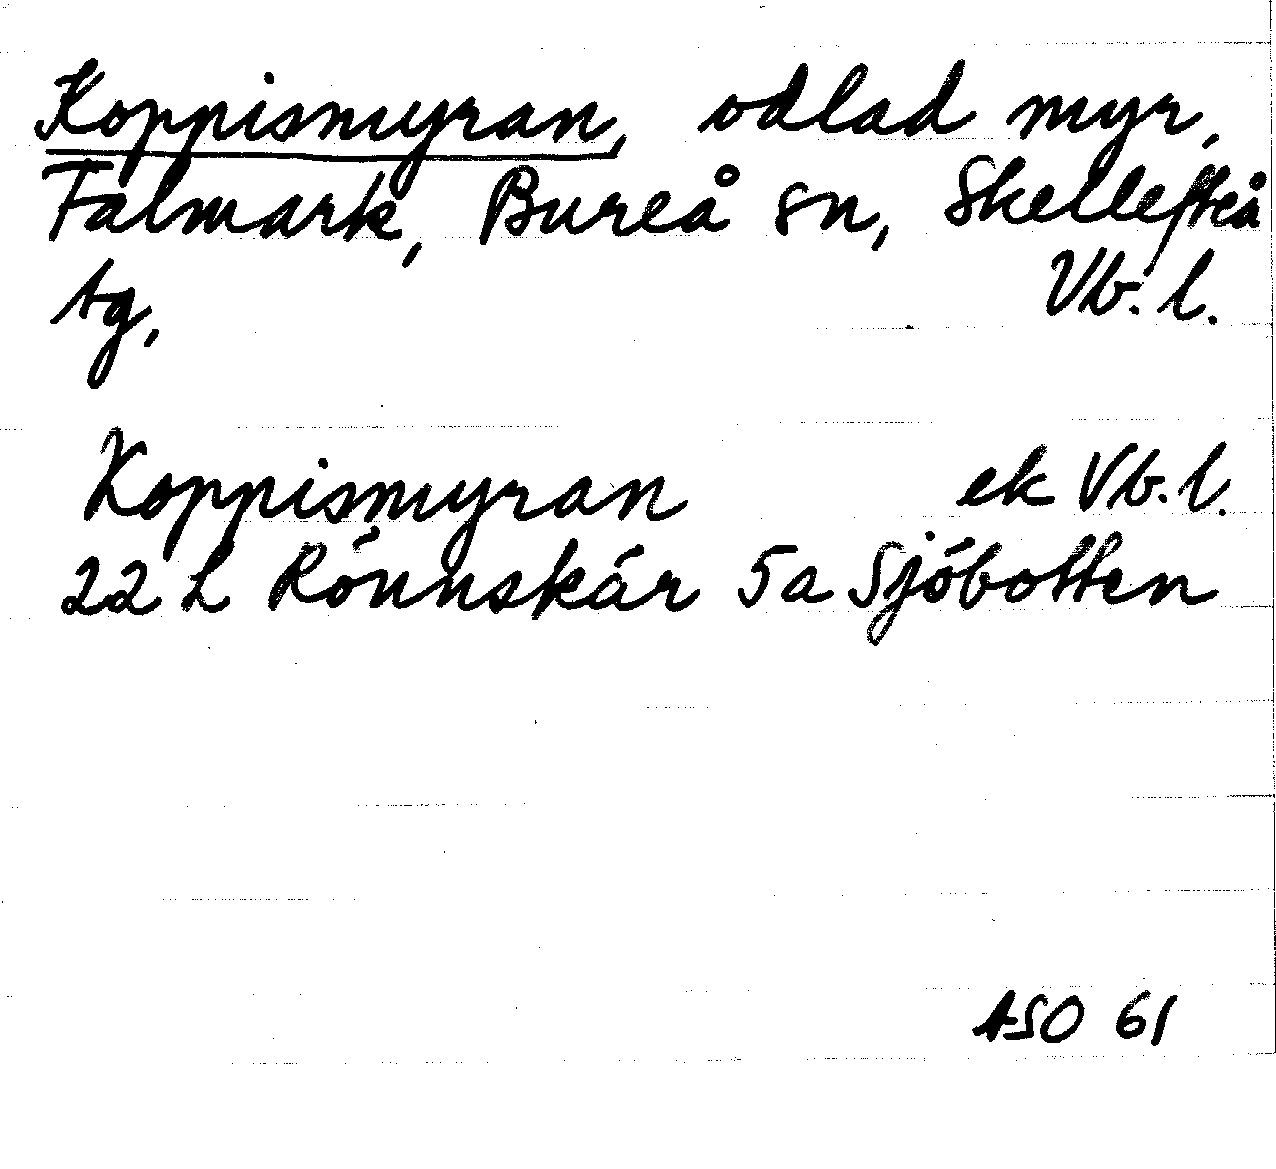 Koppismyran, odlad myr,
Falmark, Bureå sn, Skellefteå
tg, Vb. l.
Koppismyran ek Vb. l.
22 L Rönnskär 5a Sjöbotten
ASO 61